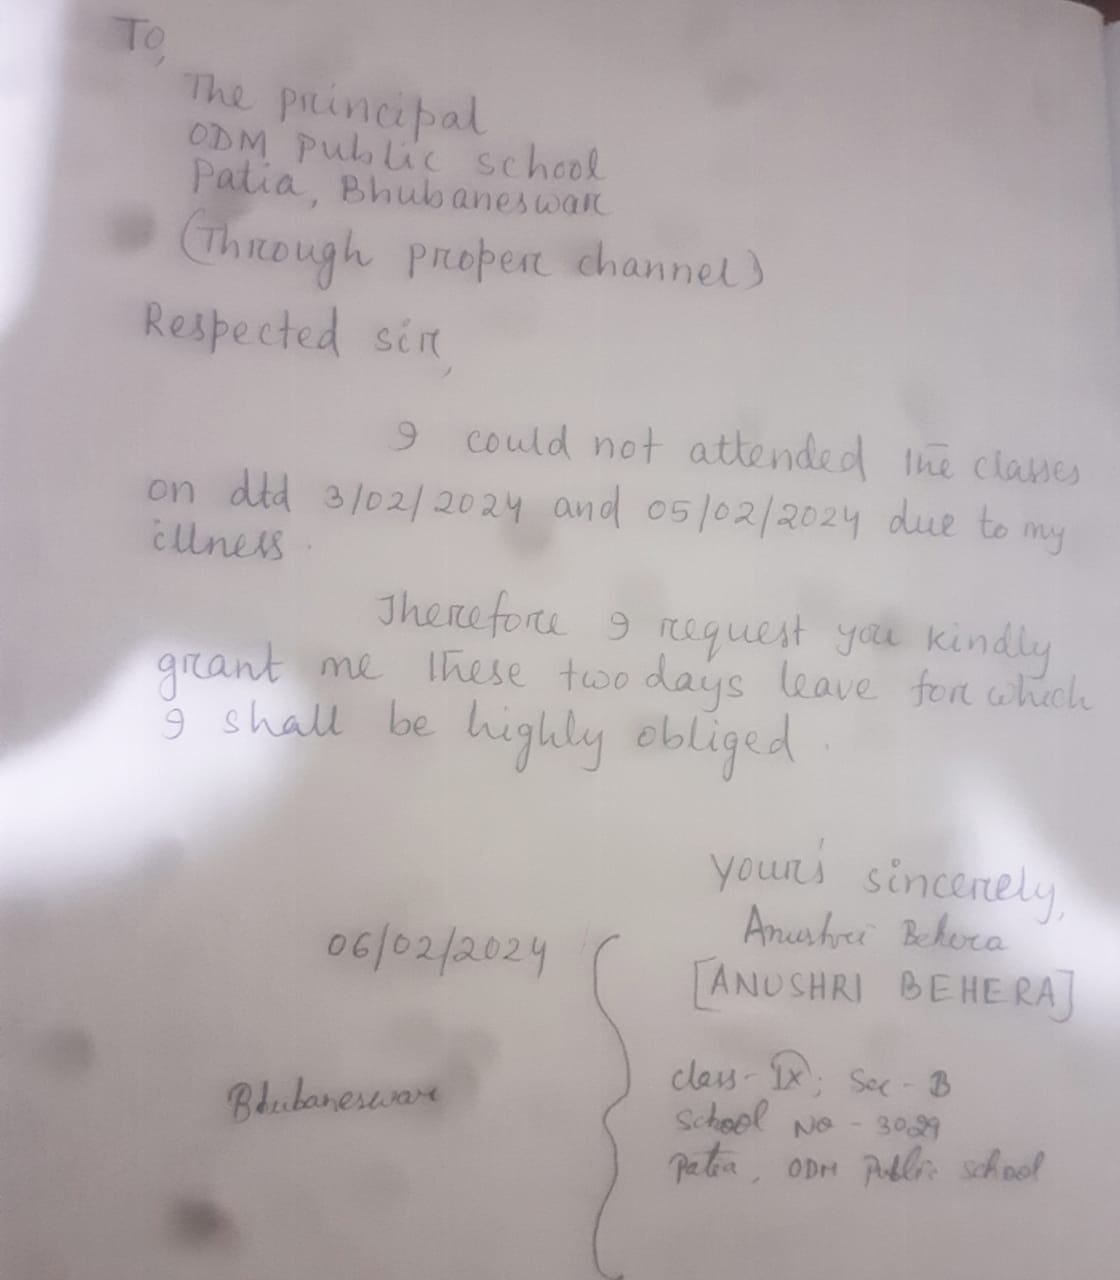 To,
The principal
ODM Public school
Patia, Bhubaneswar
(Through proper channel)
Respected sir,
I could not attended the classes
on dtd 3/02/2024 and 05/02/2024 due to my
illness.
Therefore I request you kindly
grant me these two days leave for which
I shall be highly obliged.
your's sincerely,
Anushri Behera
06/02/2024
[ANUSHRI BEHERA]
class - IX; Sec - B
Bhubaneswar
School No - 3029
Patia, ODM Public school